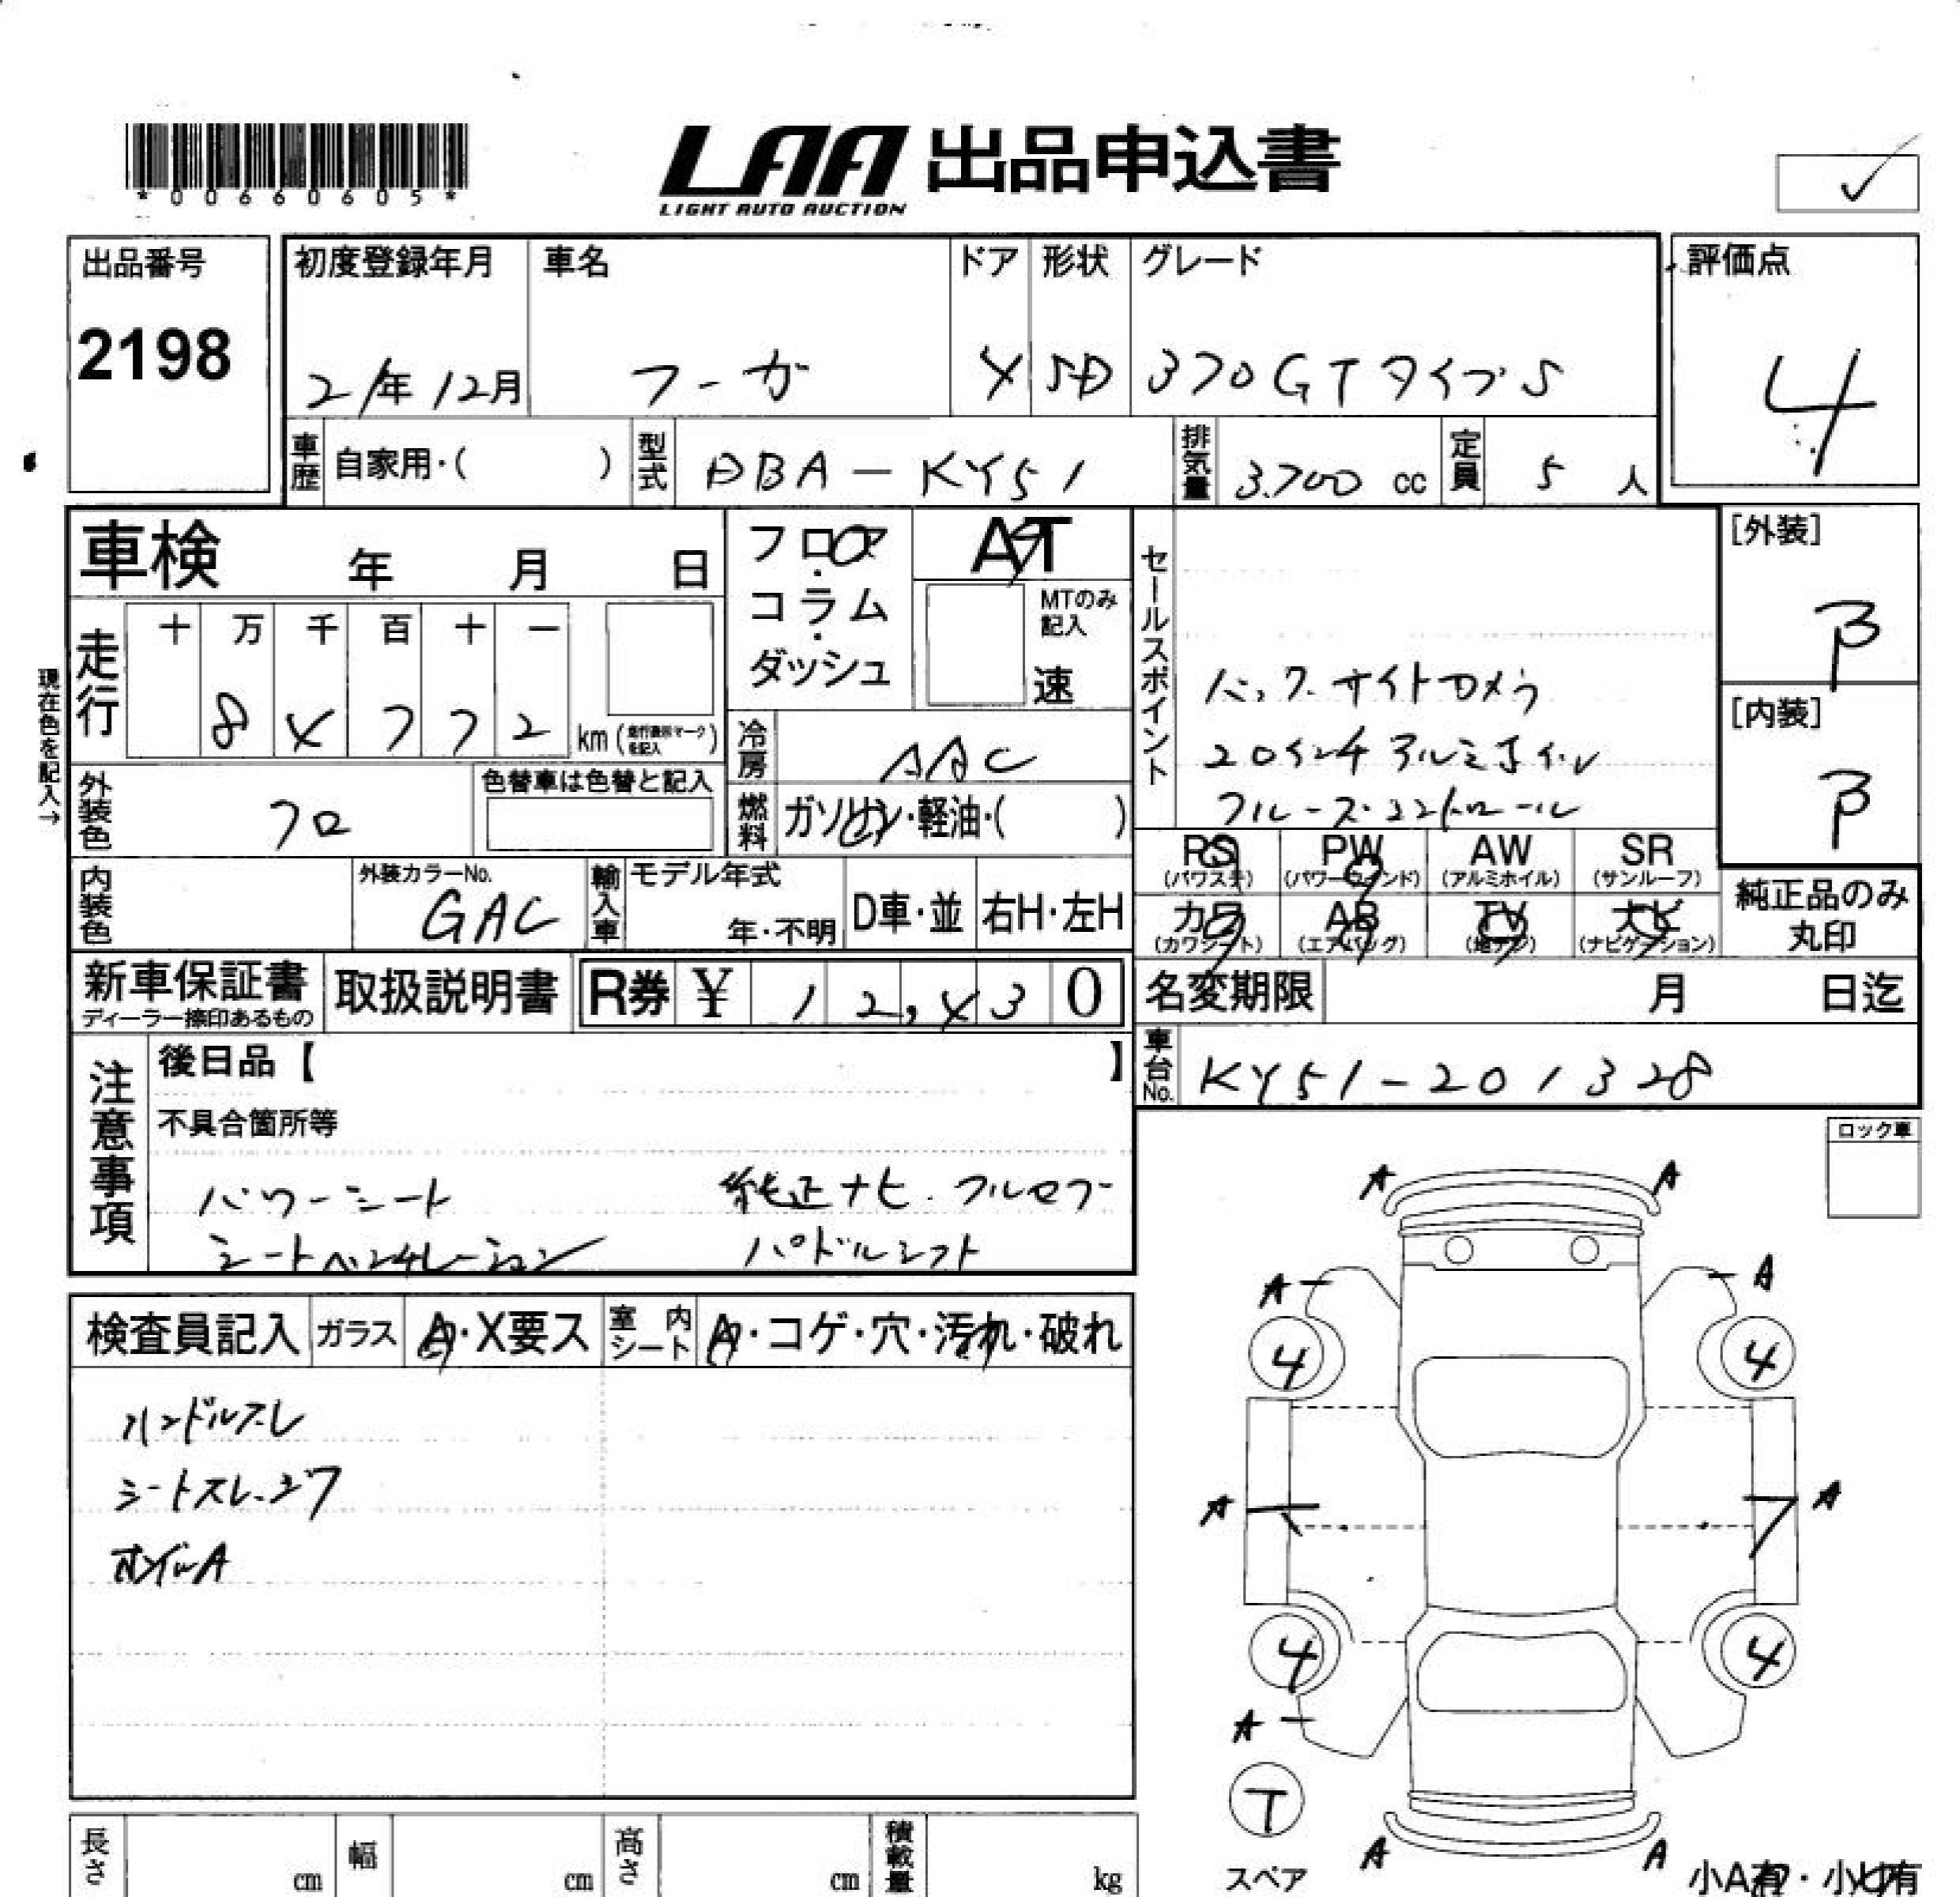 *00660605*
LAA 出品申込書
LIGHT AUTO AUCTION
出品番号
2198
初度登録年月 車名 ドア 形状 グレード
21年12月 フーガ 4 SD 370GTタイプS
評価点
4
車歴 自家用・( ) 型式 DBA-KY51 排気量 3.700 cc 定員 5 人
車検 年 月 日
フロア・コラム・ダッシュ
AT
MTのみ記入
速
セールスポイント
バック.サイドカメラ
20インチアルミホイール
クルーズ.コントロール
[外装]
B
[内装]
B
現在色を記入→
走行 十 万 千 百 十 一
8 4 7 7 2 km (走行表示マークを記入)
冷房 AAC
燃料 ガソリン・軽油・( )
外装色 クロ 色替車は色替と記入
内装色 外装カラーNo. GAC
輸入車 モデル年式 年・不明 D車・並 右H・左H
RS PW AW SR
(パワステ) (パワーウインド) (アルミホイル) (サンルーフ)
カワ AB TV ナビ
(カワシート) (エアバッグ) (地デジ) (ナビゲーション)
純正品のみ
丸印
新車保証書 取扱説明書 R券 ¥ 12,430
ディーラー捺印あるもの
名変期限 月 日迄
車台No. KY51-201328
注意事項
後日品【 】
不具合箇所等
パワーシート 純正ナビ.フルセグ
シートベンチレーション パドルシフト
ロック車
検査員記入 ガラス A・X要ス 室内シート A・コゲ・穴・汚れ・破れ
ハンドルスレ
シートスレ.シワ
ホイルA
A A
A A
4 4
A A
4 4
A
T
スペア
A A
小A有・小U有
長さ cm 幅 cm 高さ cm 積載量 kg